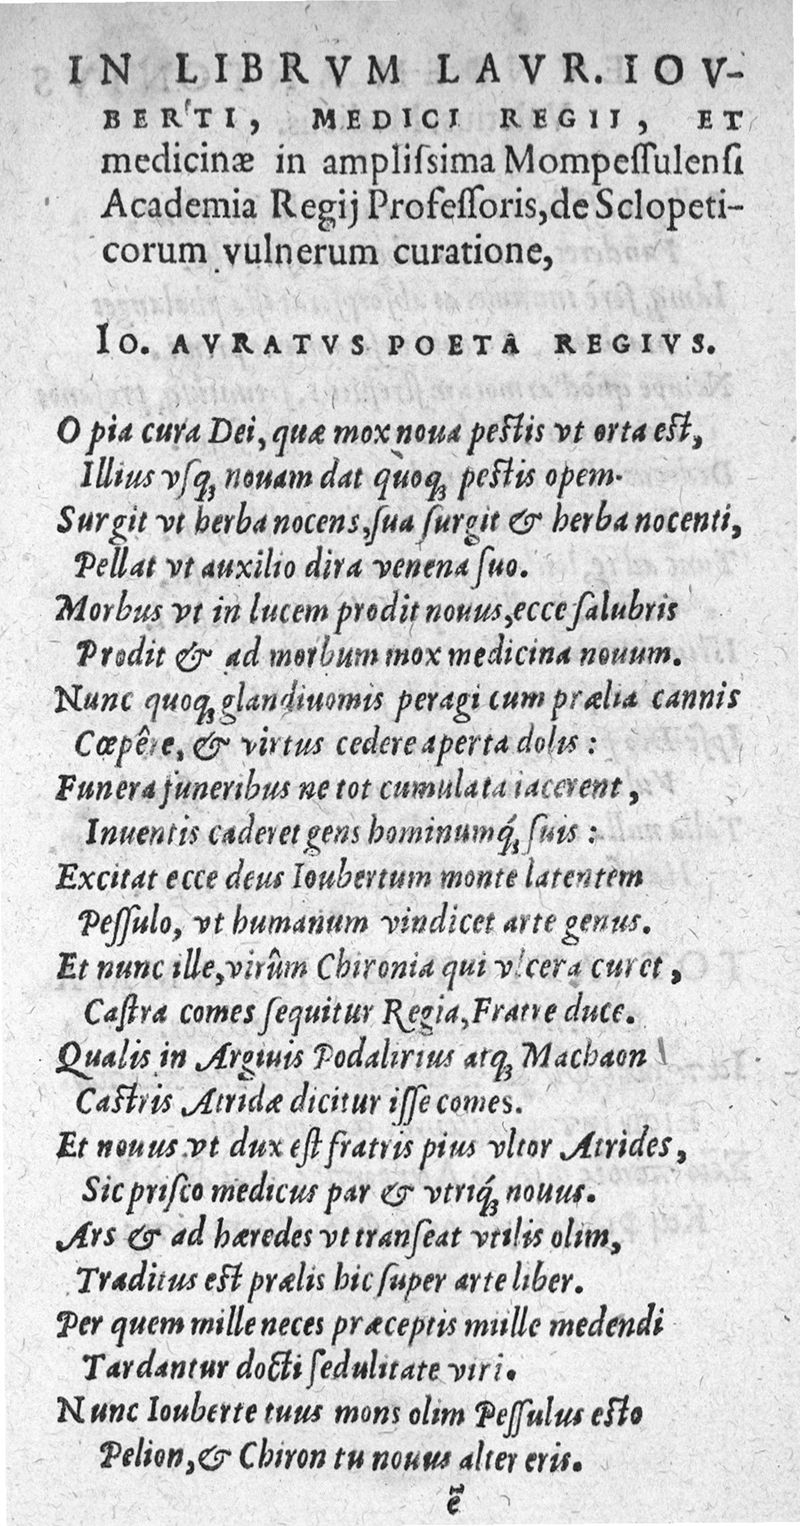 IN LIBRVM LAVR. IOV-
BERTI, MEDICI REGII, ET
medicinæ in ampliſsima Mompeſſulenſi
Academia Regij Profeſſoris, de Sclopeti-
corum vulnerum curatione,
IO. AVRATVS POETA REGIVS.
O pia cura Dei, quæ mox noua peſtis vt orta eſt,
Illius vſq; nouam dat quoq; peſtis opem.
Surgit vt herba nocens, ſua ſurgit & herba nocenti,
Pellat vt auxilio dira venena ſuo.
Morbus vt in lucem prodit nouus, ecce ſalubris
Prodit & ad morbum mox medicina nouum.
Nunc quoq; glandiuomis peragi cum prælia cannis
Cœpêre, & virtus cedere aperta dolis :
Funera funeribus ne tot cumulata iacerent,
Inuentis caderet gens hominumq́; ſuis :
Excitat ecce deus Ioubertum monte latentem
Peſſulo, vt humanum vindicet arte genus.
Et nunc ille, virûm Chironia qui vlcera curet,
Caſtra comes ſequitur Regia, Fratre duce.
Qualis in Argiuis Podalirius atq; Machaon
Caſtris Atridæ dicitur iſſe comes.
Et nouus vt dux eſt fratris pius vltor Atrides,
Sic priſco medicus par & vtriq́; nouus.
Ars & ad hæredes vt tranſeat vtilis olim,
Traditus eſt prælis hic ſuper arte liber.
Per quem mille neces præceptis mille medendi
Tardantur docti ſedulitate viri.
Nunc Iouberte tuus mons olim Peſſulus eſto
Pelion, & Chiron tu nouus alter eris.
ẽ